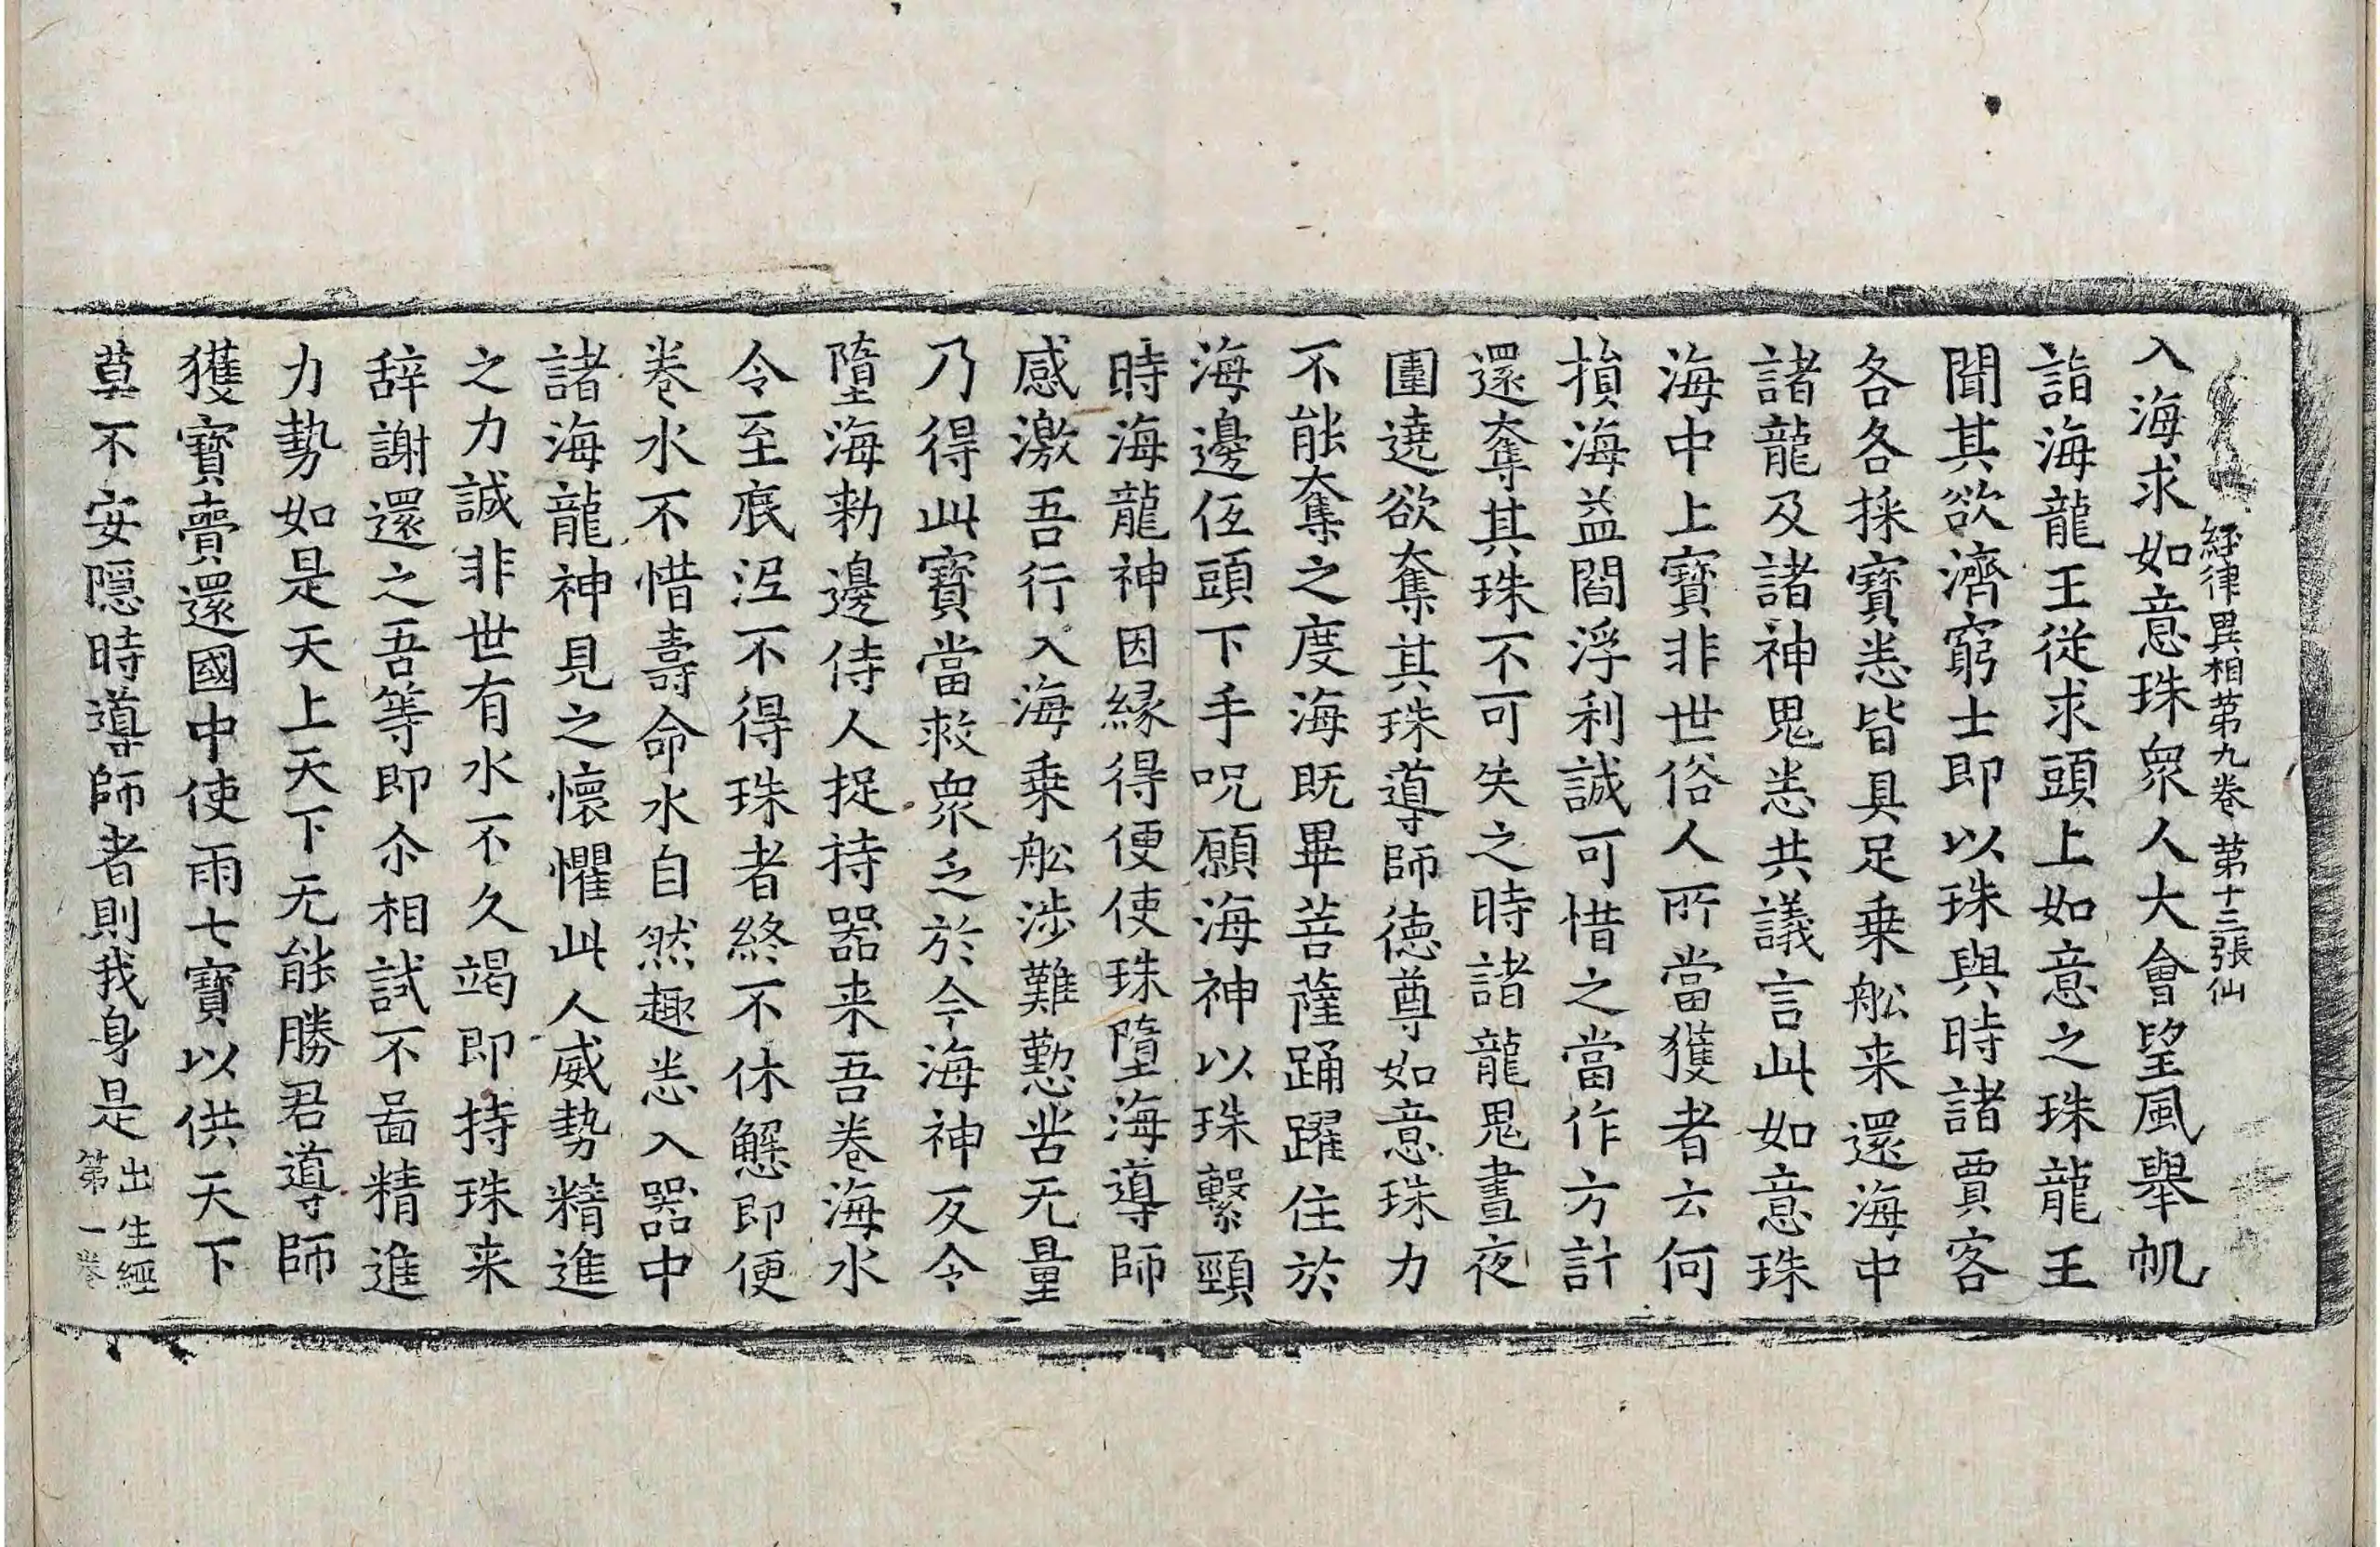 經律異相第九卷 第十三張仙
入海求如意珠衆人大會望風舉帆
詣海龍王從求頭上如意之珠龍王
聞其欲濟窮士即以珠與時諸賈客
各各採寳悉皆具足乗舩来還海中
諸龍及諸神鬼悉共議言此如意珠
海中上寳非世俗人所當獲者云何
損海益閻浮利誠可惜之當作方計
還奪其珠不可失之時諸龍鬼晝夜
圍遶欲奪其珠導師德尊如意珠力
不能奪之度海既畢菩薩踊躍住於
海邊伍頭下手呪願海神以珠繫頸
時海龍神因縁得便使珠墮海導師
感激吾行入海乗舩涉難懃苦无量
乃得此寳當救衆乏於今海神反令
墮海勑邊侍人捉持器来吾巻海水
令至底泥不得珠者終不休懈即便
巻水不惜壽命水自然趣悉入器中
諸海龍神見之懷懼此人威勢精進
之力誠非世有水不久竭即持珠来
辞謝還之吾等即尒相試不啚精進
力勢如是天上天下无能勝君導師
獲寳賷還國中使雨七寳以供天下
莫不安隠時導師者則我身是出生經
第一巻